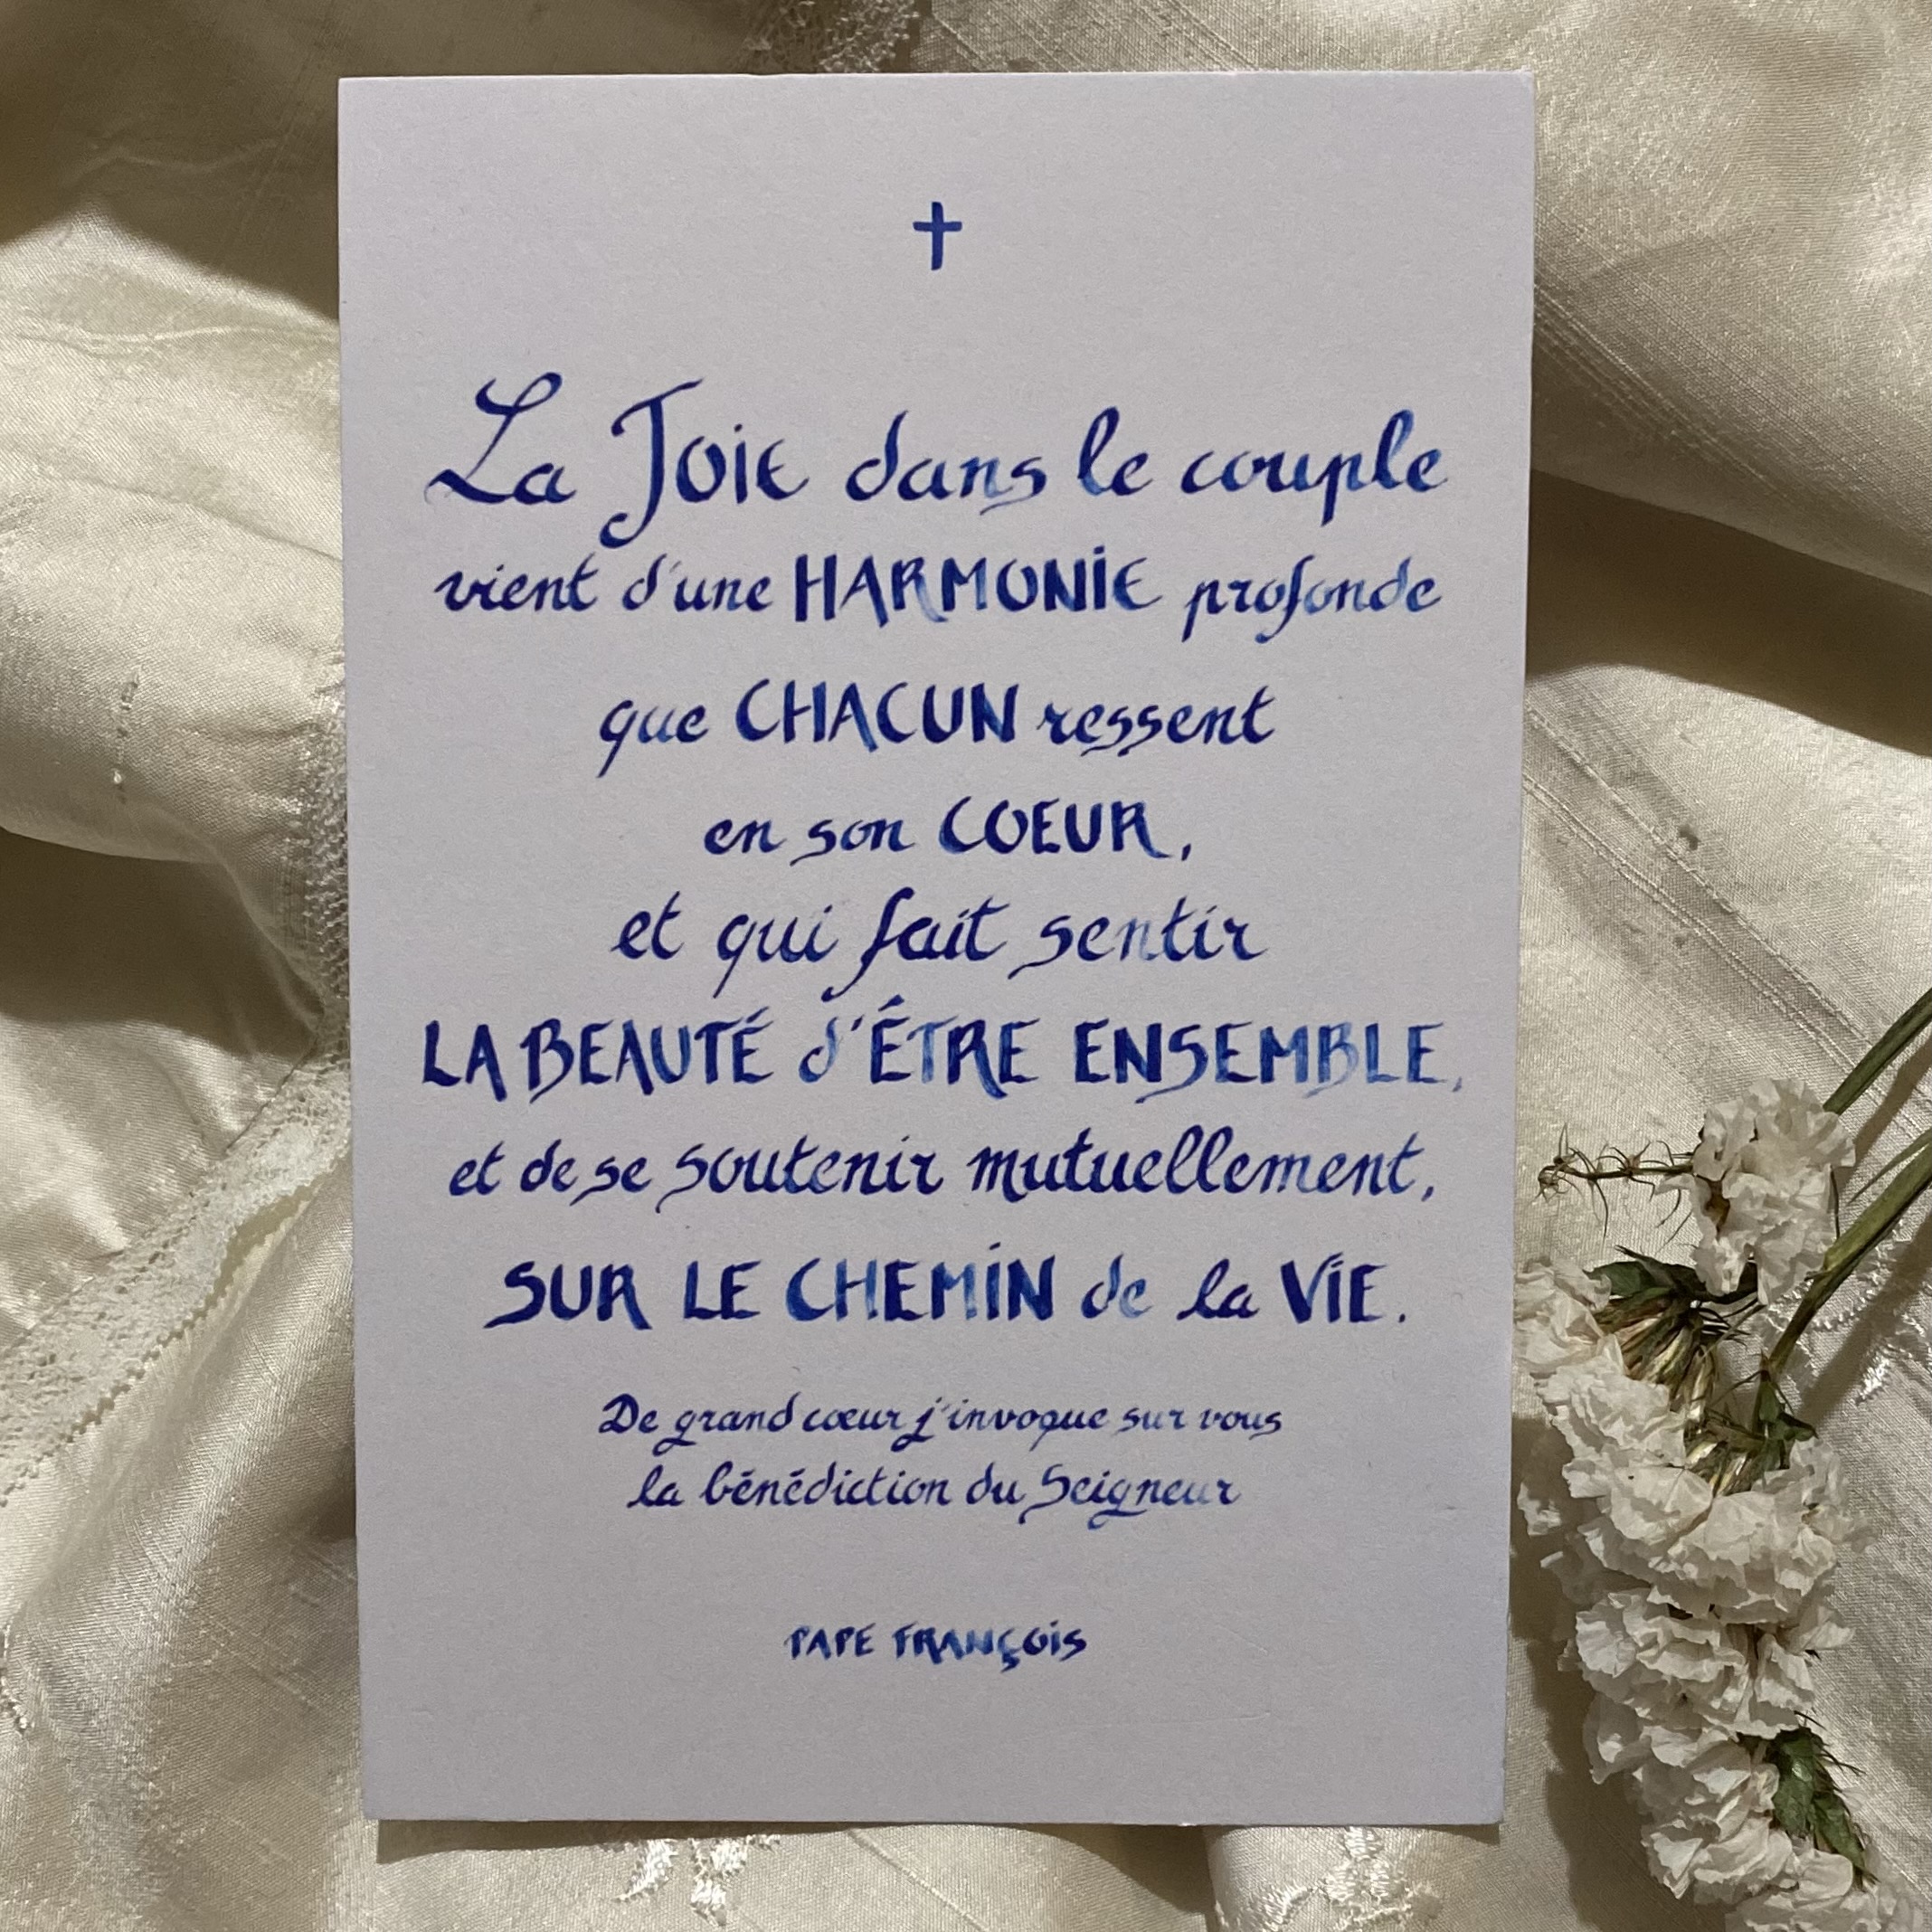 La Joie dans le couple
vient d'une HARMONIE profonde
que CHACUN ressent
en son COEUR,
et qui fait sentir
LA BEAUTÉ d'ÉTRE ENSEMBLE,
et de se soutenir mutuellement,
SUR LE CHEMIN de la VIE.
De grand cœur j'invoque sur vous
la bénédiction du Seigneur
PAPE FRANÇOIS